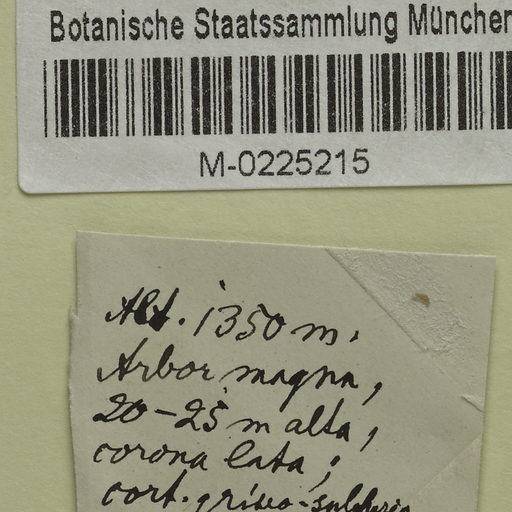 Botanische Staatssammlung München
M-0225215
Alt. 1350 m.
Arbor magna,
20-25 m alta,
corona lata;
cort. griseo-